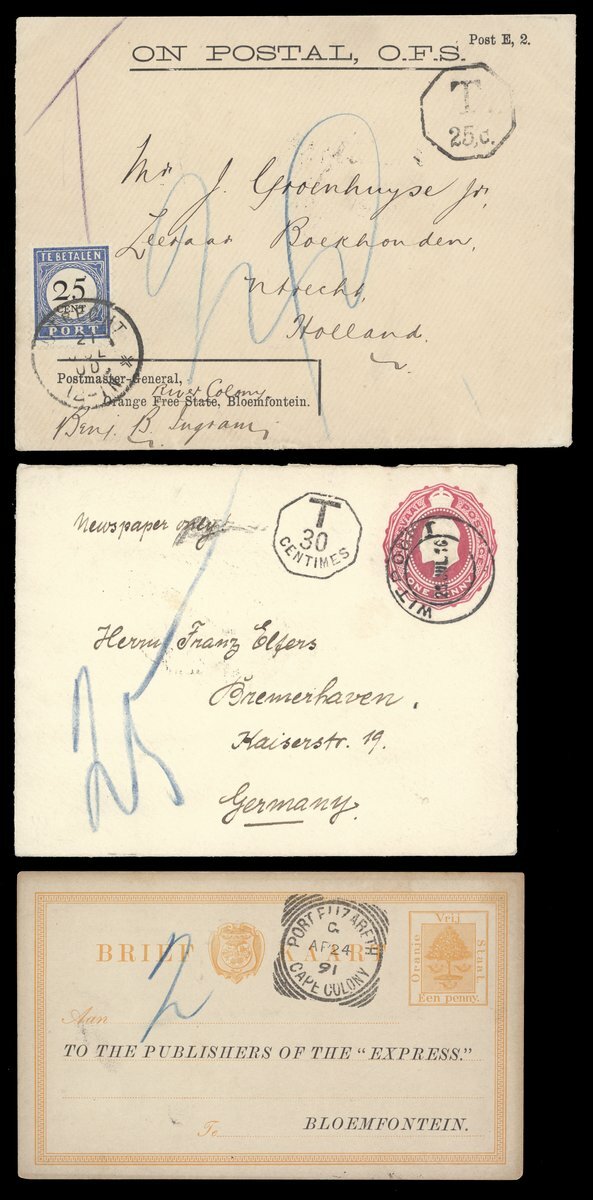 ON POSTAL, O.F.S.
Post E, 2.
T.
25,c.
Mr J. Groenhuyse Jr,
Leeraar Boekhouden,
Utrecht,
Holland.
TE BETALEN
25
CENT
PORT
21
00
Postmaster-General,
River Colony
Orange Free State, Bloemfontein.
Benj. B. Ingram
Newspaper only
T
30
CENTIMES
POSTAGE
ONE PENNY
Herrn Franz Elfers
Bremerhaven.
Kaiserstr. 19.
Germany.
25
BRIEF KAART
PORT ELIZABETH
G
AP 24
91
CAPE COLONY
Vrij
Oranje
Staat.
Een penny.
2
Aan
TO THE PUBLISHERS OF THE "EXPRESS."
To
BLOEMFONTEIN.